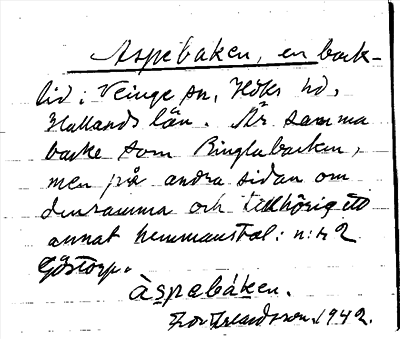 Aspebaken, en back-
lid i Veinge sn, Höks hd,
Hallands län. Är samma
backe som Ringlabacken,
men på andra sidan om
densamma och tillhörig ett
annat hemmanstal: n:r 2
Göstorp.
Àspabáken.
1942.